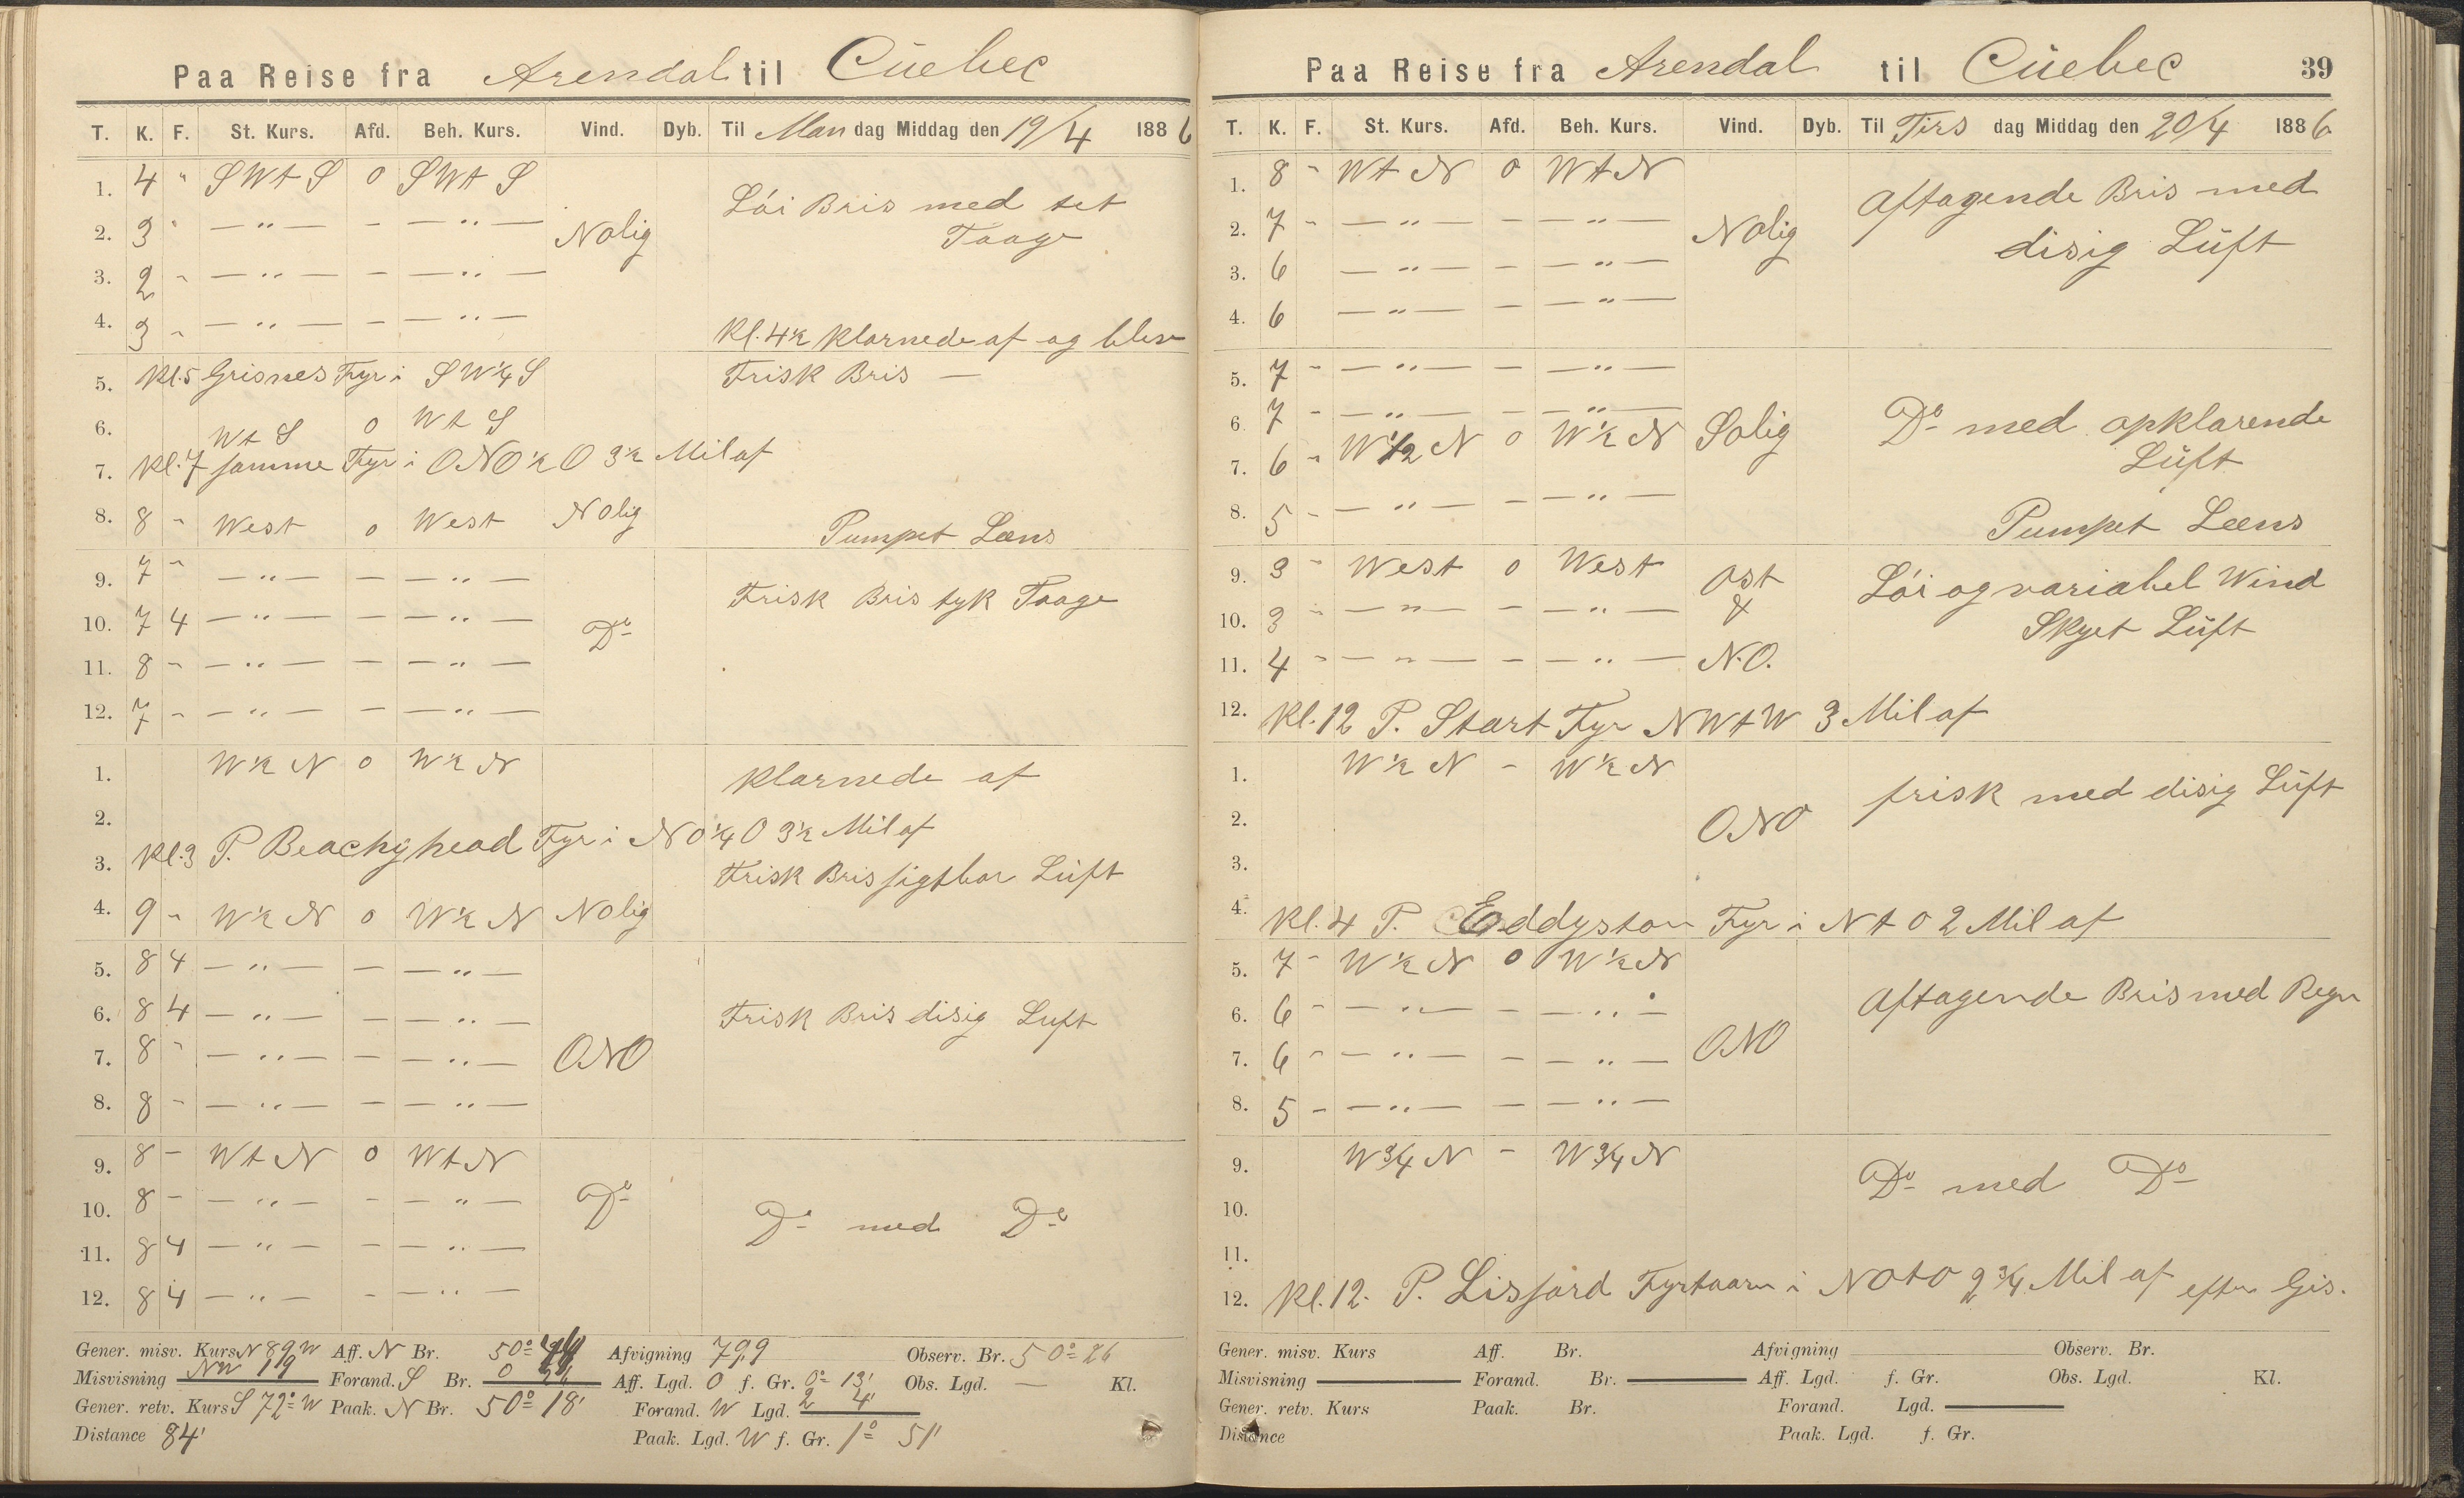 Paa Reise fra Arendal til Cüebec
T. K. F. St. Kurs. Afd. Beh. Kurs. Vind. Dyb. Til Man dag Middag den 19/4 1886
1. 4 " SWtS o SWtS
Löi Bris med tet
2. 3 " — " — - — " — Nolig
Taage
3. 2 - — " — - — " —
4. 3 - — " — - — " —
Kl. 4½ klarnede af og blev
5. Kl. 5 Grisnes Fyr i SW¼S Frisk Bris —
6. WtS o WtS
7. Kl. 7 samme Fyr i ONO½O 3½ Mil af
8. 8 - West o West Nolig Pumpet Læns
9. 7 - — " — - — " —
Frisk Bris tyk Taage
10. 7 4 — " — - — " — Do
11. 8 - — " — - — " —
12. 7 - — " — - — " —
1. W½N o W½N klarnede af
2.
3. Kl. 3 P. Beachyhead Fyr i NO¼O 3½ Mil af
Frisk Bris sigtbar Lüft
4. 9 - W½N o W½N Nolig
5. 8 4 — " — - — " —
6. 8 4 — " — - — " — Frisk Bris disig Luft
7. 8 - — " — - — " — ONO
8. 8 - — " — - — " —
9. 8 - WtN o WtN
10. 8 - — " — - — " — Do Do med Do
11. 8 4 — " — - — " —
12. 8 4 — " — - — " —
Gener. misv. Kurs N 89 W Aff. N Br. 50° Afvigning 79,9 Observ. Br. 50° 26
Misvisning NW 19 Forand. S Br. 0 Aff. Lgd. O f. Gr. 0° 13' Obs. Lgd. — Kl.
Gener. retv. Kurs S 72° W Paak. N Br. 50° 18' Forand. W Lgd. 2 4'
Distance 84' Paak. Lgd. W f. Gr. 1° 51'
Paa Reise fra Arendal til Cüebec 39
T. K. F. St. Kurs. Afd. Beh. Kurs. Vind. Dyb. Til Tirs dag Middag den 20/4 1886
1. 8 - WtN o WtN
Aftagende Bris med
2. 7 - — " — - — " — Nolig
disig Lüft
3. 6 — " — - — " —
4. 6 — " — - — " —
5. 7 - — " — - — " —
6. 7 - — " — - — " —
Do med opklarende
7. 6 - W½N o W½N Solig
Lüft
8. 5 - — " — - — " —
Pumpet Læns
9. 3 - West o West Ost
Löi og variabel Wind
10. 3 - — " — - — " — &
Skyet Lüft
11. 4 - — " — - — " — N.O.
12. Kl. 12 P. Start Fyr NWtW 3 Mil af
1. W½N - W½N
frisk med disig Lüft
2. ONO
3.
4. Kl. 4 P. Eddyston Fyr i NtO 2 Mil af
5. 7 - W½N o W½N
Aftagende Bris med Regn
6. 6 - — " — - — " —
7. 6 - — " — - — " — ONO
8. 5 - — " — - — " —
9. W¾N - W¾N
Do med Do
10.
11.
12. Kl. 12. P. Lisjard Fyrtaarn i NOtO 2¾ Mil af efter Gis.
Gener. misv. Kurs Aff. Br. Afvigning Observ. Br.
Misvisning Forand. Br. Aff. Lgd. f. Gr. Obs. Lgd. Kl.
Gener. retv. Kurs Paak. Br. Forand. Lgd.
Distance Paak. Lgd. f. Gr.